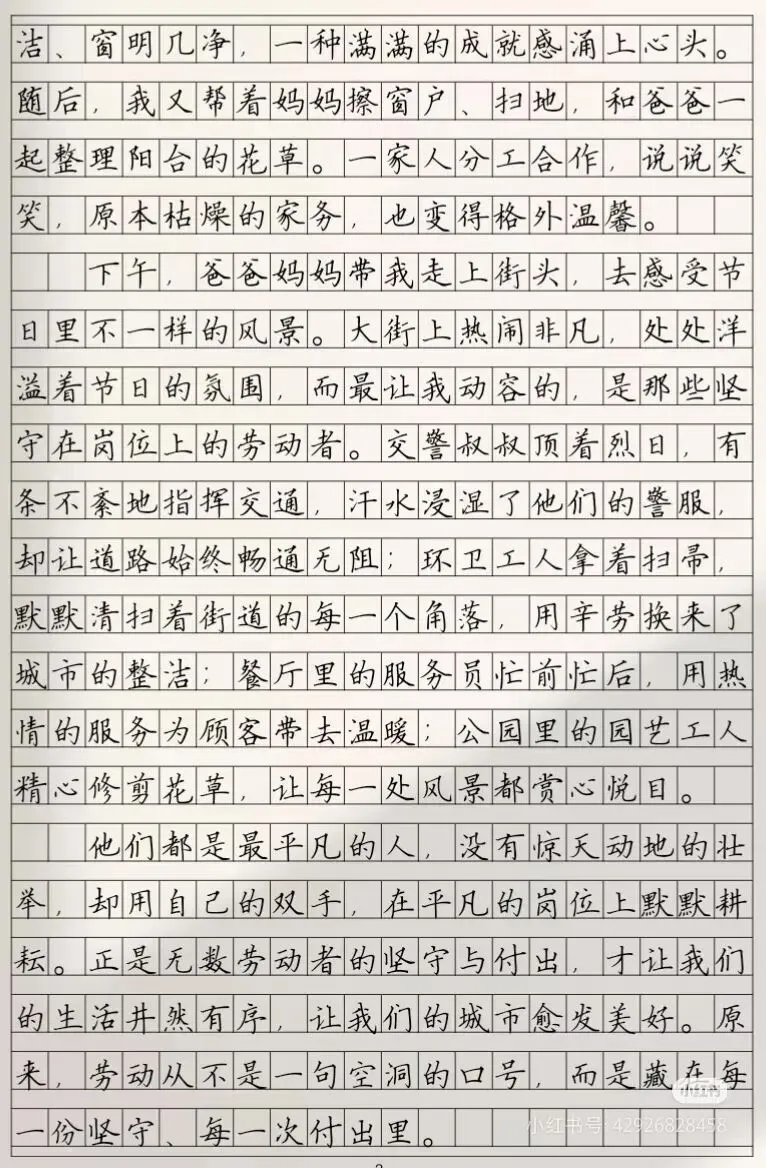 洁、窗明几净，一种满满的成就感涌上心头。
随后，我又帮着妈妈擦窗户、扫地，和爸爸一
起整理阳台的花草。一家人分工合作，说说笑
笑，原本枯燥的家务，也变得格外温馨。
下午，爸爸妈妈带我走上街头，去感受节
日里不一样的风景。大街上热闹非凡，处处洋
溢着节日的氛围，而最让我动容的，是那些坚
守在岗位上的劳动者。交警叔叔顶着烈日，有
条不紊地指挥交通，汗水浸湿了他们的警服，
却让道路始终畅通无阻；环卫工人拿着扫帚，
默默清扫着街道的每一个角落，用辛劳换来了
城市的整洁；餐厅里的服务员忙前忙后，用热
情的服务为顾客带去温暖；公园里的园艺工人
精心修剪花草，让每一处风景都赏心悦目。
他们都是最平凡的人，没有惊天动地的壮
举，却用自己的双手，在平凡的岗位上默默耕
耘。正是无数劳动者的坚守与付出，才让我们
的生活井然有序，让我们的城市愈发美好。原
来，劳动从不是一句空洞的口号，而是藏在每
一份坚守、每一次付出里。
小红书
小红书号：42926828458